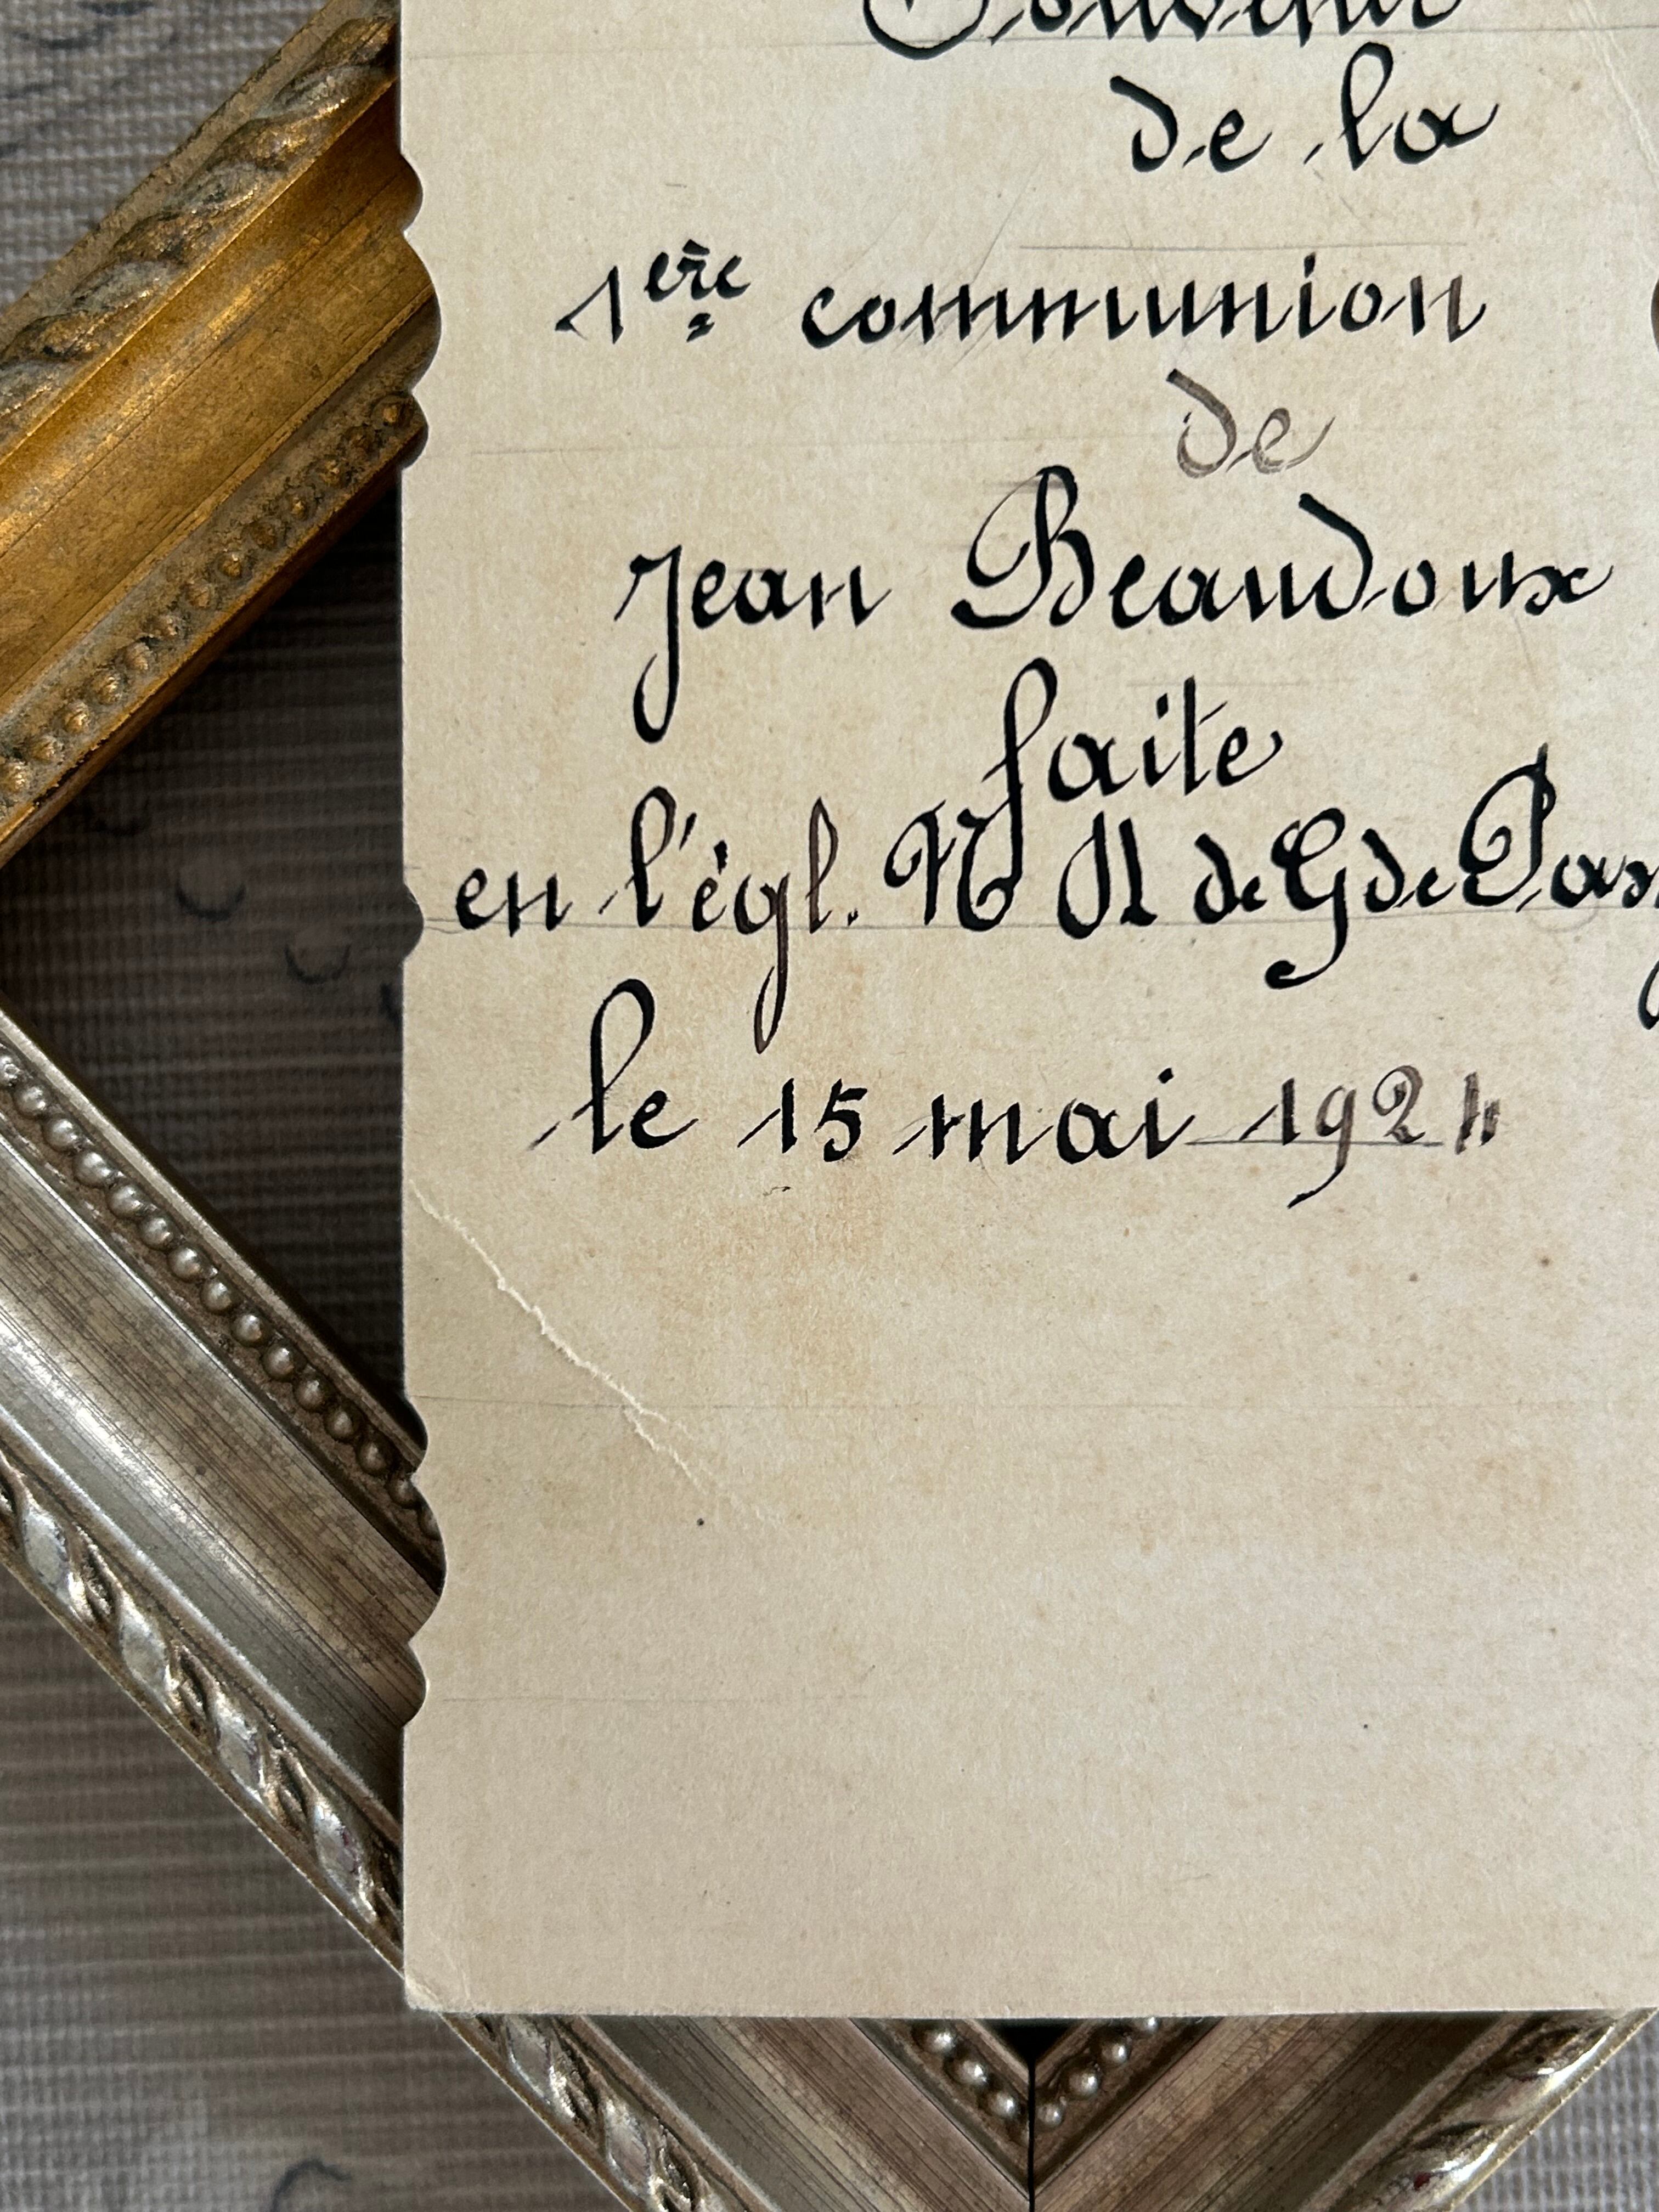 Souvenir
de la
1ère communion
de
Jean Beaudoux
faite
en l'égl. N D de G de
le 15 mai 1924